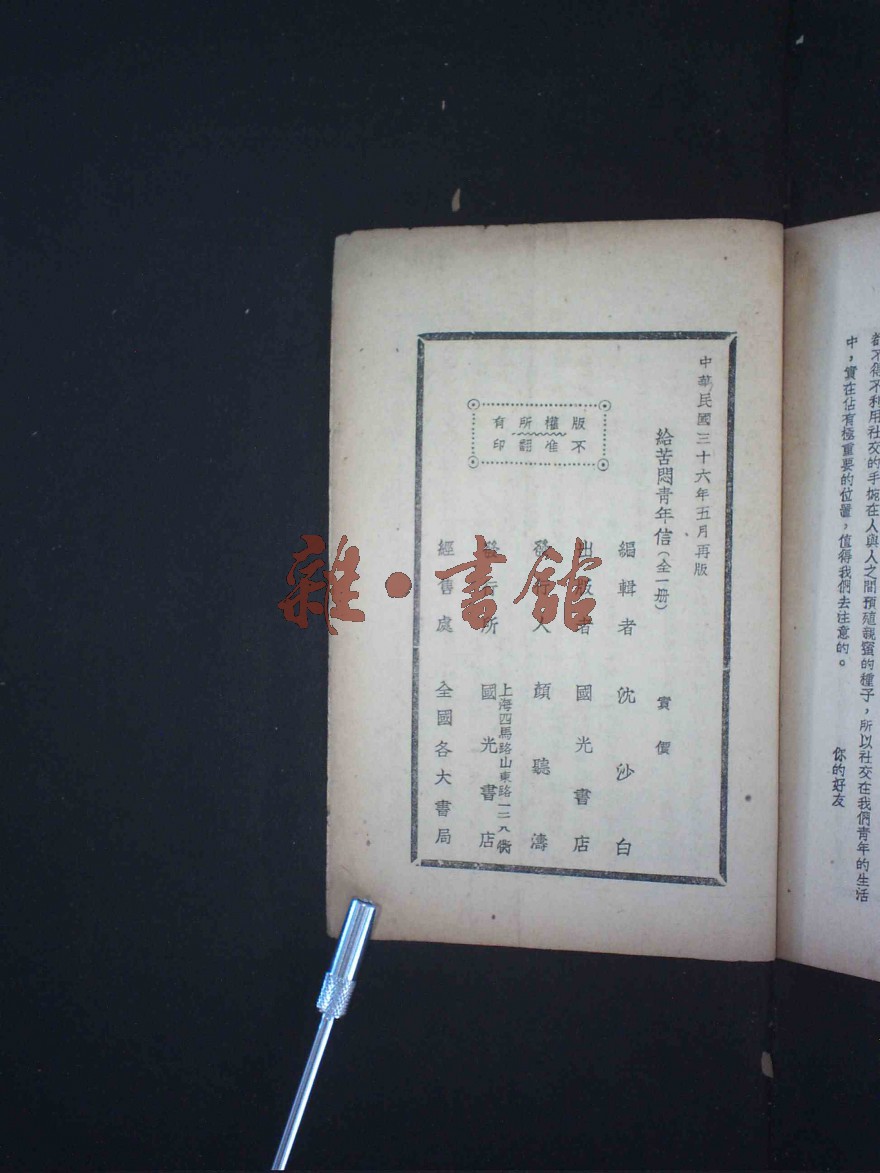 都不得不利用社交的手腕在人與人之間預殖親蜜的種子，所以社交在我們青年的生活
中，實在佔有極重要的位置，值得我們去注意的。
你的好友
中華民國三十六年五月再版
給苦悶青年信（全一册）
實價
版權所有
不准翻印
編輯者 沈沙白
出版者 國光書店
發行人 顏聽濤
上海四馬路山東路一二八衖
發行所 國光書店
經售處 全國各大書局
雜·書館